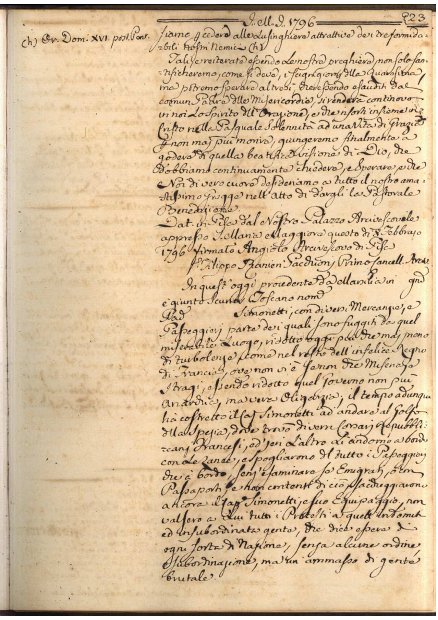 J. M. J. 1796
223
(h) Ev. Dom. XVI. post Pent.
siamo cedere alle lusinghiere attrattive dei tre formida-
bili Nostri Nemici (h)
Tali, e reiterate essendo le nostre preghiere, non solo san-
tificheremo, come si deve, i segni giorni della Quaresima
ma potremo sperare altresì, che essendo esauditi dal
comun Padre delle Misericordie, si renderà continovo
in noi lo Spirito dell'Orazione, e che risorti insieme in
Cristo nella Pasquale Sollennità ad una Vita di Grazia
non mai più morire, giungeremo finalmente a
godere di quella beatifica Visione di Dio, che
dobbiamo continuamente chiedere, e sperare, e che
Noi di vero cuore desideriamo a tutto il nostro ama-
tissimo gregge nell'atto di dargli la Pastorale
Benedizione.
Dat. in Pisa dal Nostro Palazzo Arcivescovale
appresso la Chiesa Maggiore questo dì Febbraio
1796 firmato Angiolo Arcivescovo di Pisa
Filippo Primo Cancell. Arciv.
In quest'oggi procedente da Marsilia in gni
è giunto Toscano nom
Pad Simonetti, con diversi Mercanzie, e
Passeggieri parte dei quali sono fuggiti da quel
miserabile Luogo, ridotto oggi più che mai pieno
di turbolenze, come nel resto dell'infelice Regno
di Francia, ove non vi è se non che Miseria, e
Stragi, essendo ridotto quel governo non più
Anarchia, ma vera Oligarchia, il tempo adunque
ha costretto il Cap Simonetti ad andare al Golfo
della Spezia, dove trovò diversi Corsari Repubbli-
cani Francesi, ed ieri l'altro li andorno a bordo
con le Lancie, e spogliarono di tutto i Passeggieri
che a bordo, senz'esaminare se Emigrati, o con
Passaporti, e non contenti di ciò saccheggiarono
ancora il Cap Simonetti, e suo Equipaggio, non
valsero a lui tutti i Protesti a quell'indomita
ed insubordinata gente, che dice essere di
ogni sorta di Nazione, senza alcuno ordine,
e subordinazione, ma un'ammasso di gente
brutale.